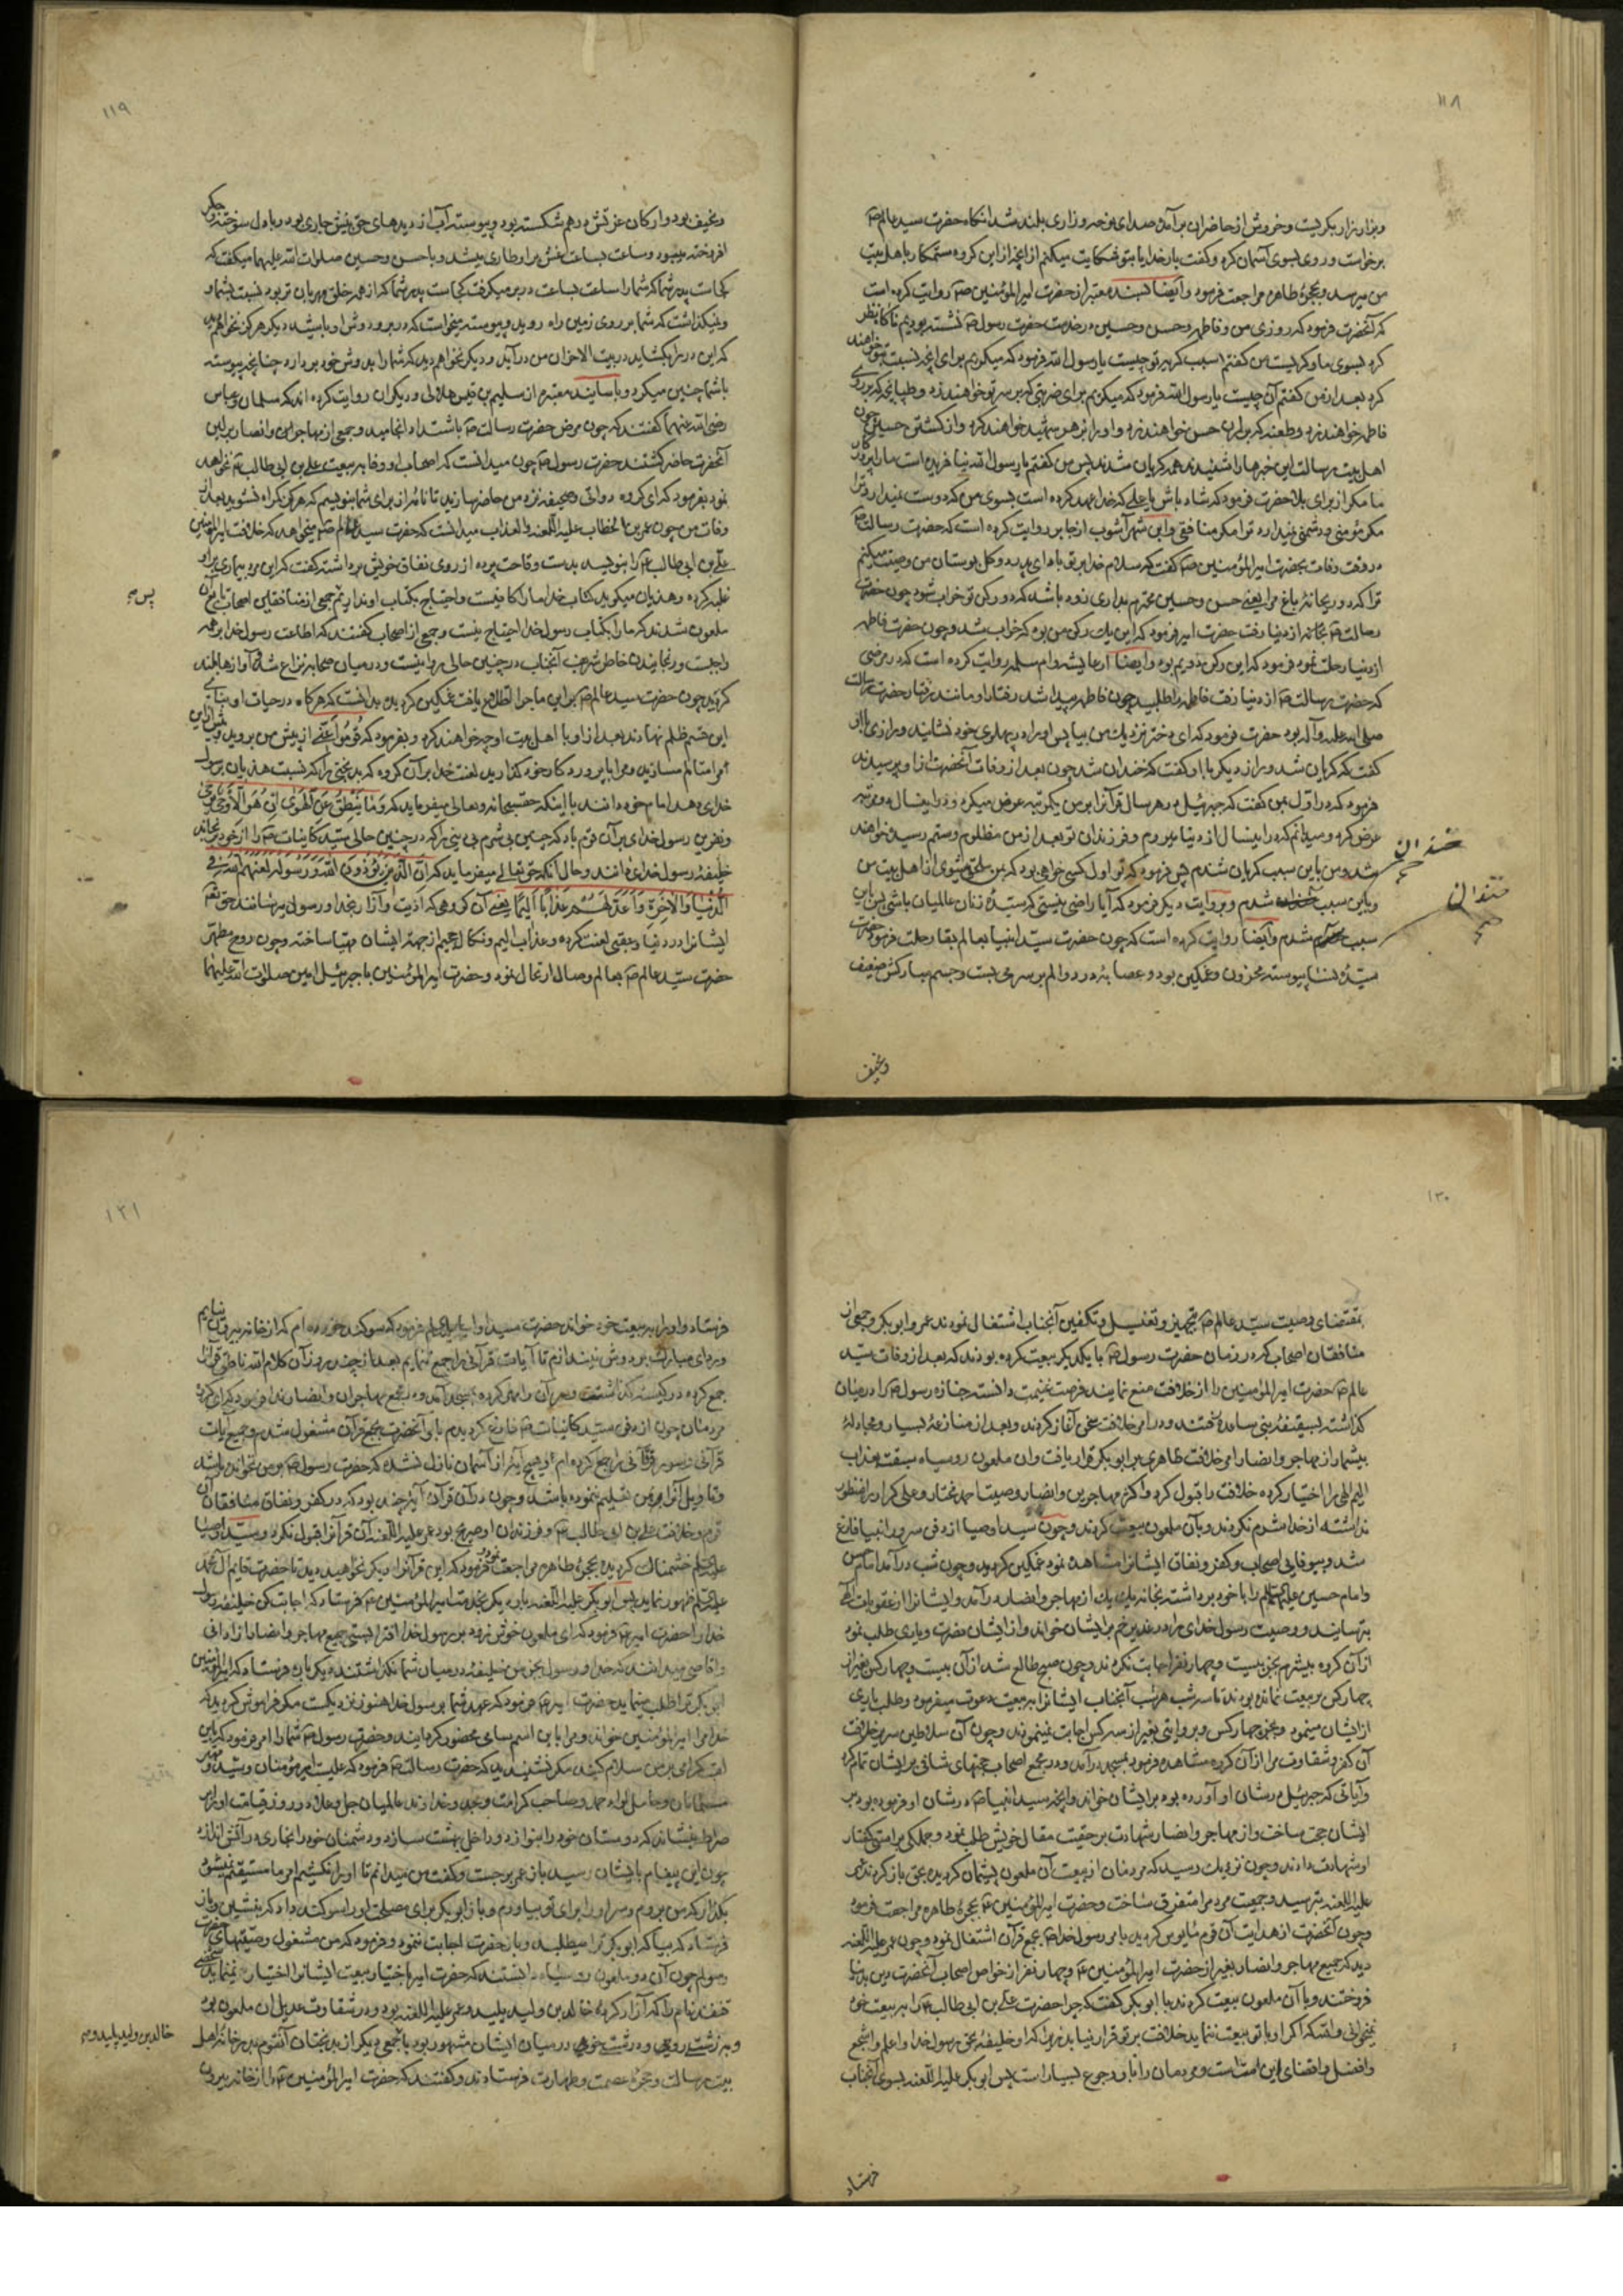 ۱۱۸
و بزار بزار بگریست و خروش از حاضران برآمد و صدای نوحه و زاری بلند شد آنگاه حضرت سید عالم ص
برخواست و روی بسوی آسمان کرد و گفت بار خدایا بتو شکایت میکنم از آنچه از این گروه ستمکار باهل بیت
من میرسد و بحجرهٔ طاهره مراجعت فرمود و ایضا بسند معتبر از حضرت امیرالمؤمنین ص روایت کرده است
که آنحضرت فرمود که روزی من و فاطمه و حسن و حسین در خدمت حضرت رسول ص نشسته بودیم ناگاه نظر
کرد بسوی ما و گریست من گفتم سبب گریه تو چیست یا رسول الله فرمود که میگریم برای آنچه نسبت بتو خواهند
کرد بعد از من گفتم آن چیست یا رسول الله فرمود که میگریم برای ضربتی که بر سر تو خواهند زد و طپانچه که بر روی
فاطمه خواهند زد و طعنه که بر ران حسن خواهند زد و او را بزهر شهید خواهند کرد و از کشتن حسین چون
اهل بیت رسالت این خبرها را شنیدند همه گریان شدند پس من گفتم یا رسول الله نیافریده است ما را پروردگار
ما مگر از برای بلا حضرت فرمود که شاد باش یا علی که خدا عهد کرده است بسوی من که دوست نمیدارد ترا
مگر مؤمنی و دشمنی نمیدارد ترا مگر منافقی و ابن شهر آشوب از جابر روایت کرده است که حضرت رسالت ص
در وقت وفات بحضرت امیرالمؤمنین ص گفت که سلام خدا بر تو باد ای پدر دو گل بوستان من وصیت میکنم
ترا که دو ریحانهٔ باغ مرا یعنی حسن و حسین محترم بداری زود باشد که دو رکن تو خراب شود چون حضرت
رسالت ص از دنیا رفت حضرت امیر فرمود که این یک رکن من بود که خراب شد و چون حضرت فاطمه
از دنیا رحلت نمود فرمود که این رکن دویم بود و ایضا از عایشه و ام سلمه روایت کرده است که در مرضی
که حضرت رسالت ص از دنیا رفت فاطمه را طلبید چون فاطمه پیدا شد رفتار او مانند رفتار حضرت رسالت
صلی الله علیه و آله بود حضرت فرمود که ای دختر نزدیک من بیا پس او را در پهلوی خود نشانید و رازی با او
گفت که گریان شد و راز دیگر با او گفت که خندان شد چون بعد از وفات آنحضرت از او پرسیدند
فرمود که در اول بمن گفت که جبرئیل در هر سال قرآن را بر من یکمرتبه عرض میکرد و در اینسال دو مرتبه
عرض کرد و میدانم که در اینسال از دنیا میروم و فرزندان تو بعد از من مظلوم و ستم رسیده خواهند
شد و من باین سبب گریان شدم پس فرمود که تو اول کسی خواهی بود که بمن ملحق میشوی از اهل بیت من
و باین سبب شدم و بروایت دیگر فرمود که آیا راضی نیستی که سیدهٔ زنان عالمیان باشی پس باین
سبب شدم و ایضا روایت کرده است که چون حضرت سید انبیا بعالم بقا رحلت فرمود حضرت
سیدهٔ نسا پیوسته محزون و غمگین بود و عصابهٔ درد و الم بر سر می بست و جسم مبارکش ضعیف
خندان
خندان
و نحیف
۱۱۹
و نحیف بود و ارکان عزتش درهم شکسته بود و پیوسته آب از دیدهای حق بینش جاری بود و با دل سوخته و جگر
افروخته میبود و ساعت بساعت غش بر او طاری میشد و با حسن و حسین صلوات الله علیهما میگفت که
کجاست پدر شما که شما را ساعت بساعت در بر میگرفت کجاست پدر شما که از همه خلق مهربان تر بود نسبت بشما و
و نمیگذاشت که شما بر روی زمین راه روید و پیوسته میخواست که در بر و دوش او باشید دیگر هرگز نخواهم دید
که این در را بگشاید در بیت الاحزان من درآید و دیگر نخواهم دید که شما را بدوش خود بردارد چنانچه پیوسته
با شما چنین میکرد و باسانید معتبره از سلیم بن قیس هلالی و دیگران روایت کرده اند که سلمان و عباس
رضی الله عنهما گفتند که چون مرض حضرت رسالت ص باشتداد انجامید و جمعی از مهاجران و انصار ببالین
آنحضرت حاضر گشتند حضرت رسول ص چون میدانست که اصحاب او وفا به بیعت علی بن ابی طالب ع نخواهند
نمود بفرمود که ای گروه دواتی و صحیفه نزد من حاضر سازید تا نامهٔ از برای شما بنویسم که هرگز گمراه نشوید بعد از
وفات من چون عمر بن الخطاب علیه اللعنه و العذاب میدانست که حضرت سید عالم ص میخواهد که خلافت امیرالمؤمنین
علی بن ابی طالب ع را بنویسد بدست وقاحت پرده از روی نفاق خویش برداشته گفت که این مرد بیماری بر او
غلبه کرده و هذیان میگوید کتاب خدا ما را کافیست و احتیاج بکتاب او نداریم جمعی از منافقین اصحاب یار آن
ملعون شدند که ما را بکتاب رسول خدا احتیاج نیست و جمعی از اصحاب گفتند که اطاعت رسول خدا بر همه
واجبست و رنجانیدن خاطر شریف آنجناب در چنین حالی روا نیست و در میان صحابه نزاع شد و آوازها بلند
گردید چون حضرت سید عالم ص بر این ماجرا اطلاع یافت غمگین گردید و بدانست که هر گاه در حیات او بنیاد
این قسم ظلم نهادند بعد از او با اهل بیت او چه خواهند کرد و بفرمود که قُومُوا عَنّی از پیش من بروید و بیش از این
مرا متألم مسازید و مرا با پروردگار خود گذارید لعنت خدا بر آن گروه که بدبختی را که نسبت هذیان برسول
خدای دهد امام خود دانند با اینکه حقسبحانه و تعالی میفرماید که وَمَا يَنْطِقُ عَنِ الْهَوَى إِنْ هُوَ إِلَّا وَحْيٌ يُوحَى
و نفرین رسول خدای بر آن قوم باد که چنین بی شرم بی دینی را که در چنین حالی سید کاینات ص را از خود برنجاند
خلیفهٔ رسول خدای دانند و حال آنکه حق تعالی میفرماید که إِنَّ الَّذِينَ يُؤْذُونَ اللهَ وَرَسُولَهُ لَعَنَهُمُ اللهُ فِي
الدُّنْيَا وَالْآخِرَةِ وَأَعَدَّ لَهُمْ عَذَابًا أَلِيمًا یعنی آن گروهی که اذیت و آزار بخدا و رسول میرسانند حق تعالی
ایشانرا در دنیا و عقبی لعنت کرده و عذاب الیم و نکال جحیم از جهت ایشان مهیا ساخته و چون روح مطهر
حضرت سید عالم ص بعالم وصال ارتحال نمود و حضرت امیرالمؤمنین با جبرئیل امین صلوات الله علیهما
پس
۱۲۰
بمقتضای وصیت سید عالم ص بتجهیز و تغسیل و تکفین آنجناب اشتغال نمودند عمر و ابو بکر و جمعی از
منافقان اصحاب که در زمان حضرت رسول ص با یکدیگر بیعت کرده بودند که بعد از وفات سید
عالم ص حضرت امیرالمؤمنین را از خلافت منع نمایند فرصت غنیمت دانسته جنازه رسول ص را در میان
گذاشته بسقیفهٔ بنی ساعده رفتند و در امر خلافت سخن آغاز کردند و بعد از منازعهٔ بسیار و مجادلهٔ
بیشمار از مهاجر و انصار امر خلافت ظاهری بر ابو بکر قرار یافت و آن ملعون روسیاه سبقت بعذاب
الیم الهی را اختیار کرده خلافت را قبول کرد و اکثر مهاجرین و انصار وصیت احمد مختار و علی کرار را منظور
نداشته از خدا شرم نکردند و بآن ملعون بیعت کردند و چون سید اوصیا از دفن سرور انبیا فارغ
شد و بیوفایی اصحاب و کفر و نفاق ایشانرا مشاهده نمود غمگین گردید و چون شب درآمد امام حسن
و امام حسین علیهما السلام را با خود برداشته بخانه یک یک از مهاجر و انصار درآمد و ایشانرا از عقوبات الهی
بترسانید و وصیت رسول خدای را در غدیر خم بر ایشان خواند و از ایشان نصرت و یاری طلب نمود
از آن گروه بیشرم بجز بیست و چهار نفر اجابت نکردند و چون صبح طالع شد از آن بیست و چهار کس بغیر از
چهار کس بر بیعت نمانده بودند تا سه شب هر شب آنجناب ایشانرا ببیعت دعوت میفرمود و طلب یاری
از ایشان مینمود و بجز چهار کس و بروایتی بغیر از سه کس اجابت نمینمودند و چون آن سلاطین سریر خلافت
آن کفر و شقاوت را از آن گروه مشاهده فرمود بمسجد درآمد و در مجمع اصحاب حجتهای شافی بر ایشان تمام کرد
و آیاتی که جبرئیل در شان او آورده بود بر ایشان خواند و آنچه سید انبیا ص در شان او فرموده بود بر
ایشان حجت ساخت و از مهاجر و انصار شهادت بر حقیت مقال خویش طلب نمود و جملگی بر راستی گفتار
او شهادت دادند و چون نزدیک رسید که مردمان از بیعت آن ملعون پشیمان گردیده بحق باز گردند عمر
علیه اللعنه بترسید و جمعیت مردم را متفرق ساخت و حضرت امیرالمؤمنین ع بحجرهٔ طاهره مراجعت فرمود
و چون آنحضرت از هدایت آن قوم مایوس گردید بامر رسول خدا ص بجمع قرآن اشتغال نمود و چون عمر علیه اللعنه
دید که جمیع مهاجر و انصار بغیر از حضرت امیرالمؤمنین ع و چهار نفر از خواص اصحاب آنحضرت دین بدنیا
فروختند و با آن ملعون بیعت کردند با ابو بکر گفت که چرا حضرت علی بن ابی طالب ع را به بیعت خود
نمیخوانی والله که اگر او با تو بیعت ننماید خلافت بر تو قرار نیابد زیرا که او خلیفهٔ بحق رسول خدا و اعلم و اشجع
و افضل و اقضای این امت است و مردمان را باو رجوع بسیار است پس ابو بکر علیه اللعنه بسوی آنجناب
فرستاد
۱۲۱
فرستاد و او را به بیعت خود خواند حضرت سید اولیا علیه السلام فرمود که سوگند خورده ام که از خانه بیرون نیایم
و ردای مبارک بر دوش نیندازم تا آیات قرآنی را جمع ننمایم بعد از چند روز آن کلام الله ناطق قرآنرا
جمع کرده در کیسه گذاشت و سر آن را مهر کرده بمسجد آمد و در مجمع مهاجران و انصار ندا فرمود که ای گروه
مردمان چون از دفن سید کاینات ص فارغ گردیدم بامر آنحضرت بجمع قرآن مشغول شدم و جمیع آیات
قرآنی و سور فرقانی را جمع کرده ام و هیچ آیهٔ از آسمان نازل نشده که حضرت رسول ص بر من نخوانده باشد
و تاویل آنرا بمن تعلیم ننموده باشد و چون در آن قرآن آیهٔ چند بود که در کفر و نفاق منافقان آن
قوم و خلافت علی بن ابی طالب ع و فرزندان او صریح بود عمر علیه اللعنه آن قرآنرا قبول نکرد و سید اوصیا
علیه السلام خشمناک گردیده بحجرهٔ طاهره مراجعت نمود و فرمود که این قرآنرا دیگر نخواهید دید تا حضرت قایم آل محمد
علیه السلام ظهور نماید پس ابو بکر علیه اللعنه بار دیگر بخدمت امیرالمؤمنین ع فرستاد که اجابت کن خلیفهٔ رسول
خدا را حضرت امیر ع فرمود که ای ملعون خوش زود بر رسول خدا افترا بستی جمیع مهاجر و انصار از ادانی
و اقاصی میدانند که خدا و رسول بجز من خلیفه در میان شما نگذاشتند دیگر باره فرستاد که امیرالمؤمنین
ابو بکر ترا طلب مینماید حضرت امیر ع فرمود که عهد شما برسول خدا هنوز نزدیکست مگر فراموش کردید که
خدا مرا امیرالمؤمنین خواند و مرا باین اسم سامی مخصوص گردانید و حضرت رسول ص شما را امر فرمود که باین
لقب گرامی بر من سلام کنید مگر نشنیدید که حضرت رسالت ص فرمود که علیست امیر مؤمنان و سید و مهتر
مسلمانان و حامل لواء حمد و صاحب کرامت و مجد و خداوند عالمیان جل و علا در روز قیامت او را بر
صراط بنشاند که دوستان خود را بنوازد و داخل بهشت سازد و دشمنان خود را بخواری در آتش اندازد
چون این پیغام بایشان رسید باز عمر برجست و گفت من میدانم تا او را نکشیم امر ما مستقیم نمیشود
بگذار که من بروم و سر او را برای تو بیاورم و باز ابو بکر برای مصلحت او را سوگند داد که بنشین و باز
فرستاد که بیا که ابو بکر ترا میطلبد و باز حضرت اجابت ننمود و فرمود که من مشغول وصیتهای حضرت
رسولم چون آن دو ملعون روسیاه دانستند که حضرت امیر باختیار بیعت ایشانرا اختیار نمینماید شخصی
قنفذ نام را که آزاد کردهٔ خالد بن ولید پلید و عمر علیه اللعنه بود و در شقاوت عدیل آن ملعون بود
و بزشت رویی و درشت خویی در میان ایشان مشهور بود با جمعی دیگر از بدبختان آنقوم بدر خانهٔ اهل
بیت رسالت و حجرهٔ عصمت و طهارت فرستادند و گفتند که حضرت امیرالمؤمنین ع را از خانه بیرون
خالد بن ولید پلید و